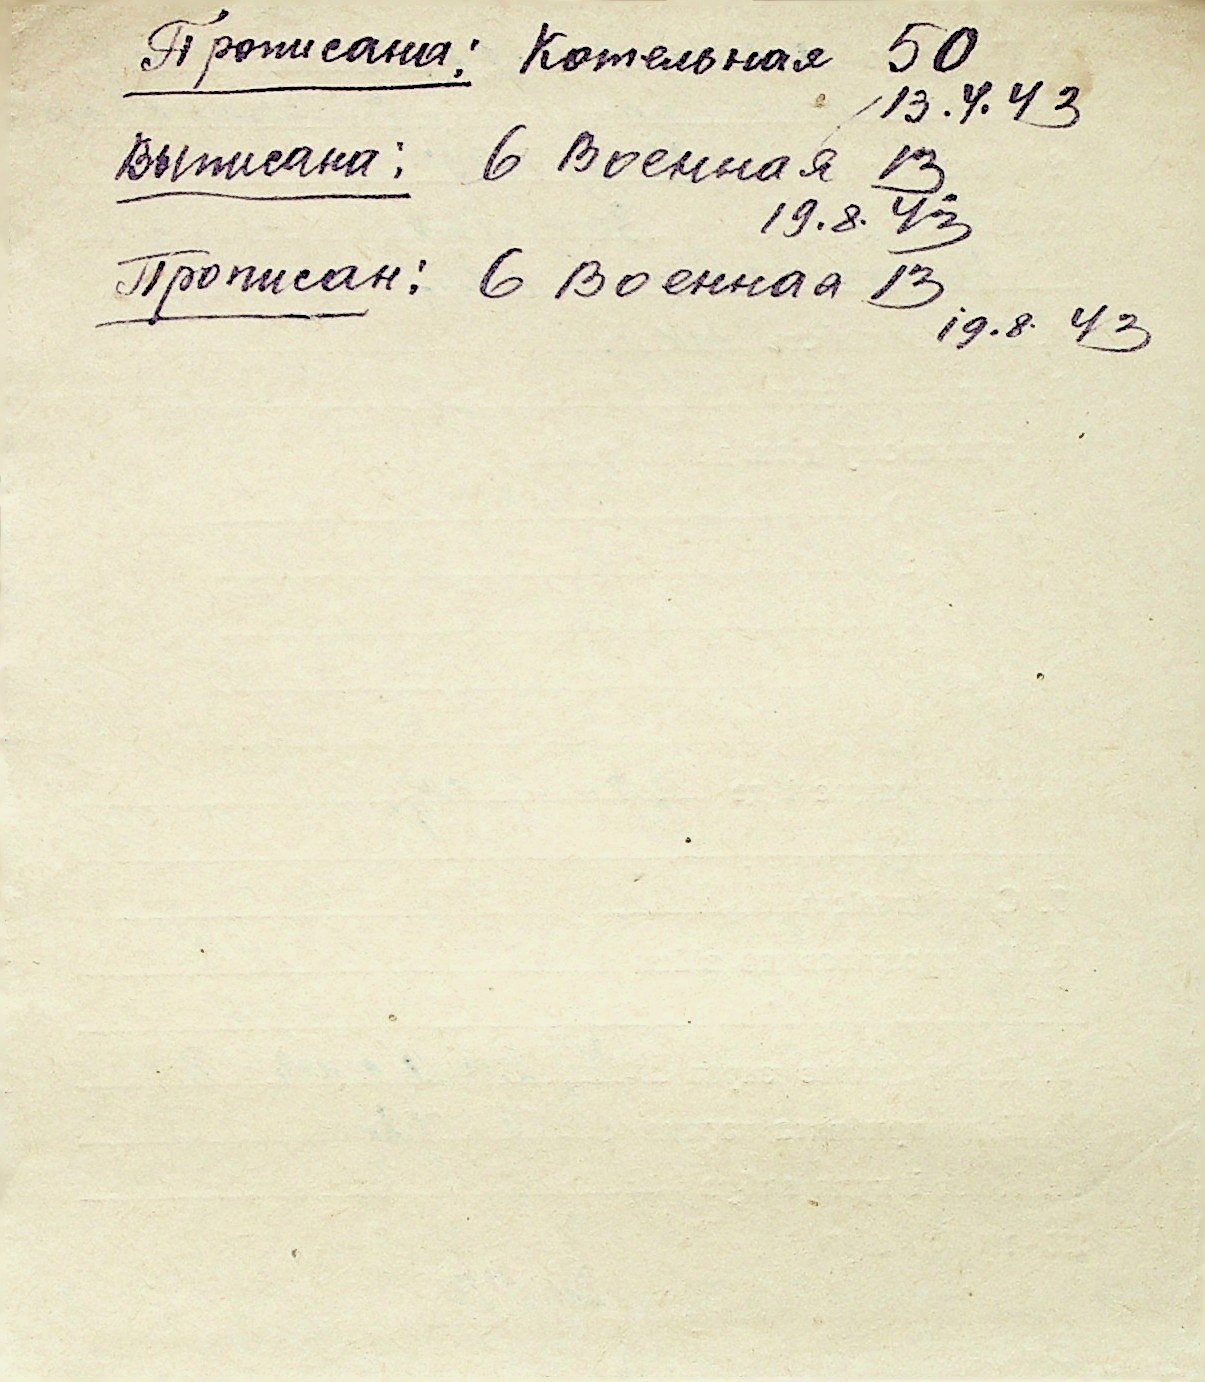 Прописана: Котельная 50
13.4.43
Выписана: 6 Военная 13
19.8.43
Прописан: 6 Военная 13
19.8.43